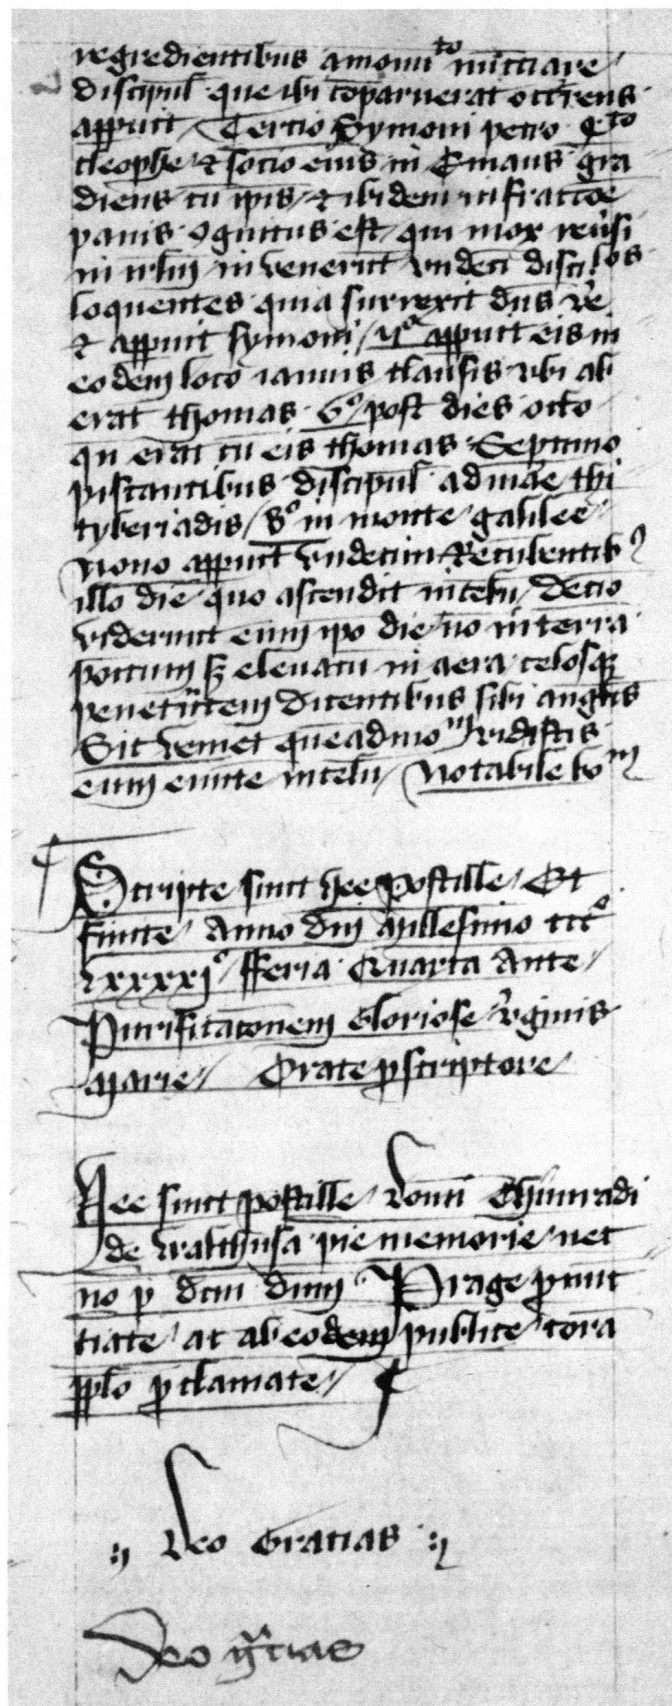 regredientibus a monu^to nu̅cciare
discipul̅ que ibi co̅paruerat occ̅rens
app̅uit Tercio Symoni petro q^to
cleophe & socio eius in Emaus gra
diens cu̅ ip̅is & ibidem in frac̅o̅e
panis ꝯgnitus est qui mox reu̅si
in ve̅neru̅t vndeci̅ disci^los
loquentes quia surrexit dn̅s v̅e
& app̅uit symoni app̅uit eis in
eodem loco ianuis clausis vbi ab
erat thomas 6° post dies octo
qn̅ erat cu̅ eis thomas Septimo
piscantibus discipul̅ ad ma̅e
tyberiadis 8° in monte galilee
Nono app̅uit vndecim Recu̅bentibꝰ
illo die quo ascendit in celu̅ Decio̅
viderunt eum ip̅o die no̅ in terra
poitum sꝫ eleuatu̅ in aera celosqꝫ
penet̅ntem dicentibus sibi angl̅is
Sic veniet queadmo^m vidistis
eum eunte̅ in celu̅ Notabile bo^m
Scripte sunt hee postille Et
finite Anno dn̅i Millesimo ccc°
lxxxxj° fferia Quarta Ante
Purificac̅onem Gloriose v̅ginis
Marie Orate p̱ scriptore
Hee sunt postille Do̅ni Chu̅nradi
de walthusa pie memorie nec
no̅ p̱ dc̅m dn̅m Prage p̱nu̅
ciate ac ab eodem publice cora̅
pp̅lo p̱clamate
Deo Gracias
Deo gr̅cias